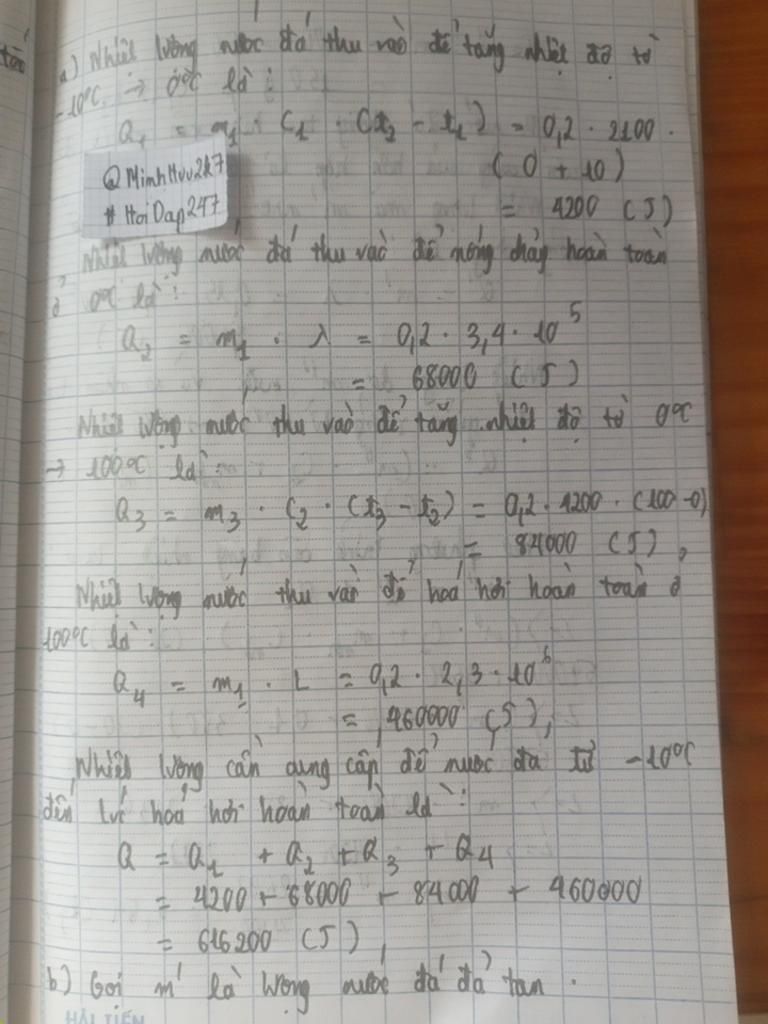 a) Nhiệt lượng nước đá thu vào để tăng nhiệt độ từ
-10°C → 0°C là:
Q1 = m1 . C1 . (t2 - t1) = 0,2 . 2100 .
(0 + 10)
= 4200 (J)
@MinhHuu2k7
#HoiDap247
Nhiệt lượng nước đá thu vào để nóng chảy hoàn toàn
ở 0°C là:
Q2 = m1 . λ = 0,2 . 3,4 . 10^5
= 68000 (J)
Nhiệt lượng nước thu vào để tăng nhiệt độ từ 0°C
→ 100°C là:
Q3 = m3 . C2 . (t3 - t2) = 0,2 . 4200 . (100 - 0)
= 84000 (J),
Nhiệt lượng nước thu vào để hoá hơi hoàn toàn ở
100°C là:
Q4 = m1 . L = 0,2 . 2,3 . 10^6
= 460000 (J),
Nhiệt lượng cần cung cấp để nước đá từ -10°C
đến lúc hoá hơi hoàn toàn là:
Q = Q1 + Q2 + Q3 + Q4
= 4200 + 68000 + 84000 + 460000
= 616200 (J),
b) Gọi m' là lượng nước đá đã tan.
HẢI TIẾN